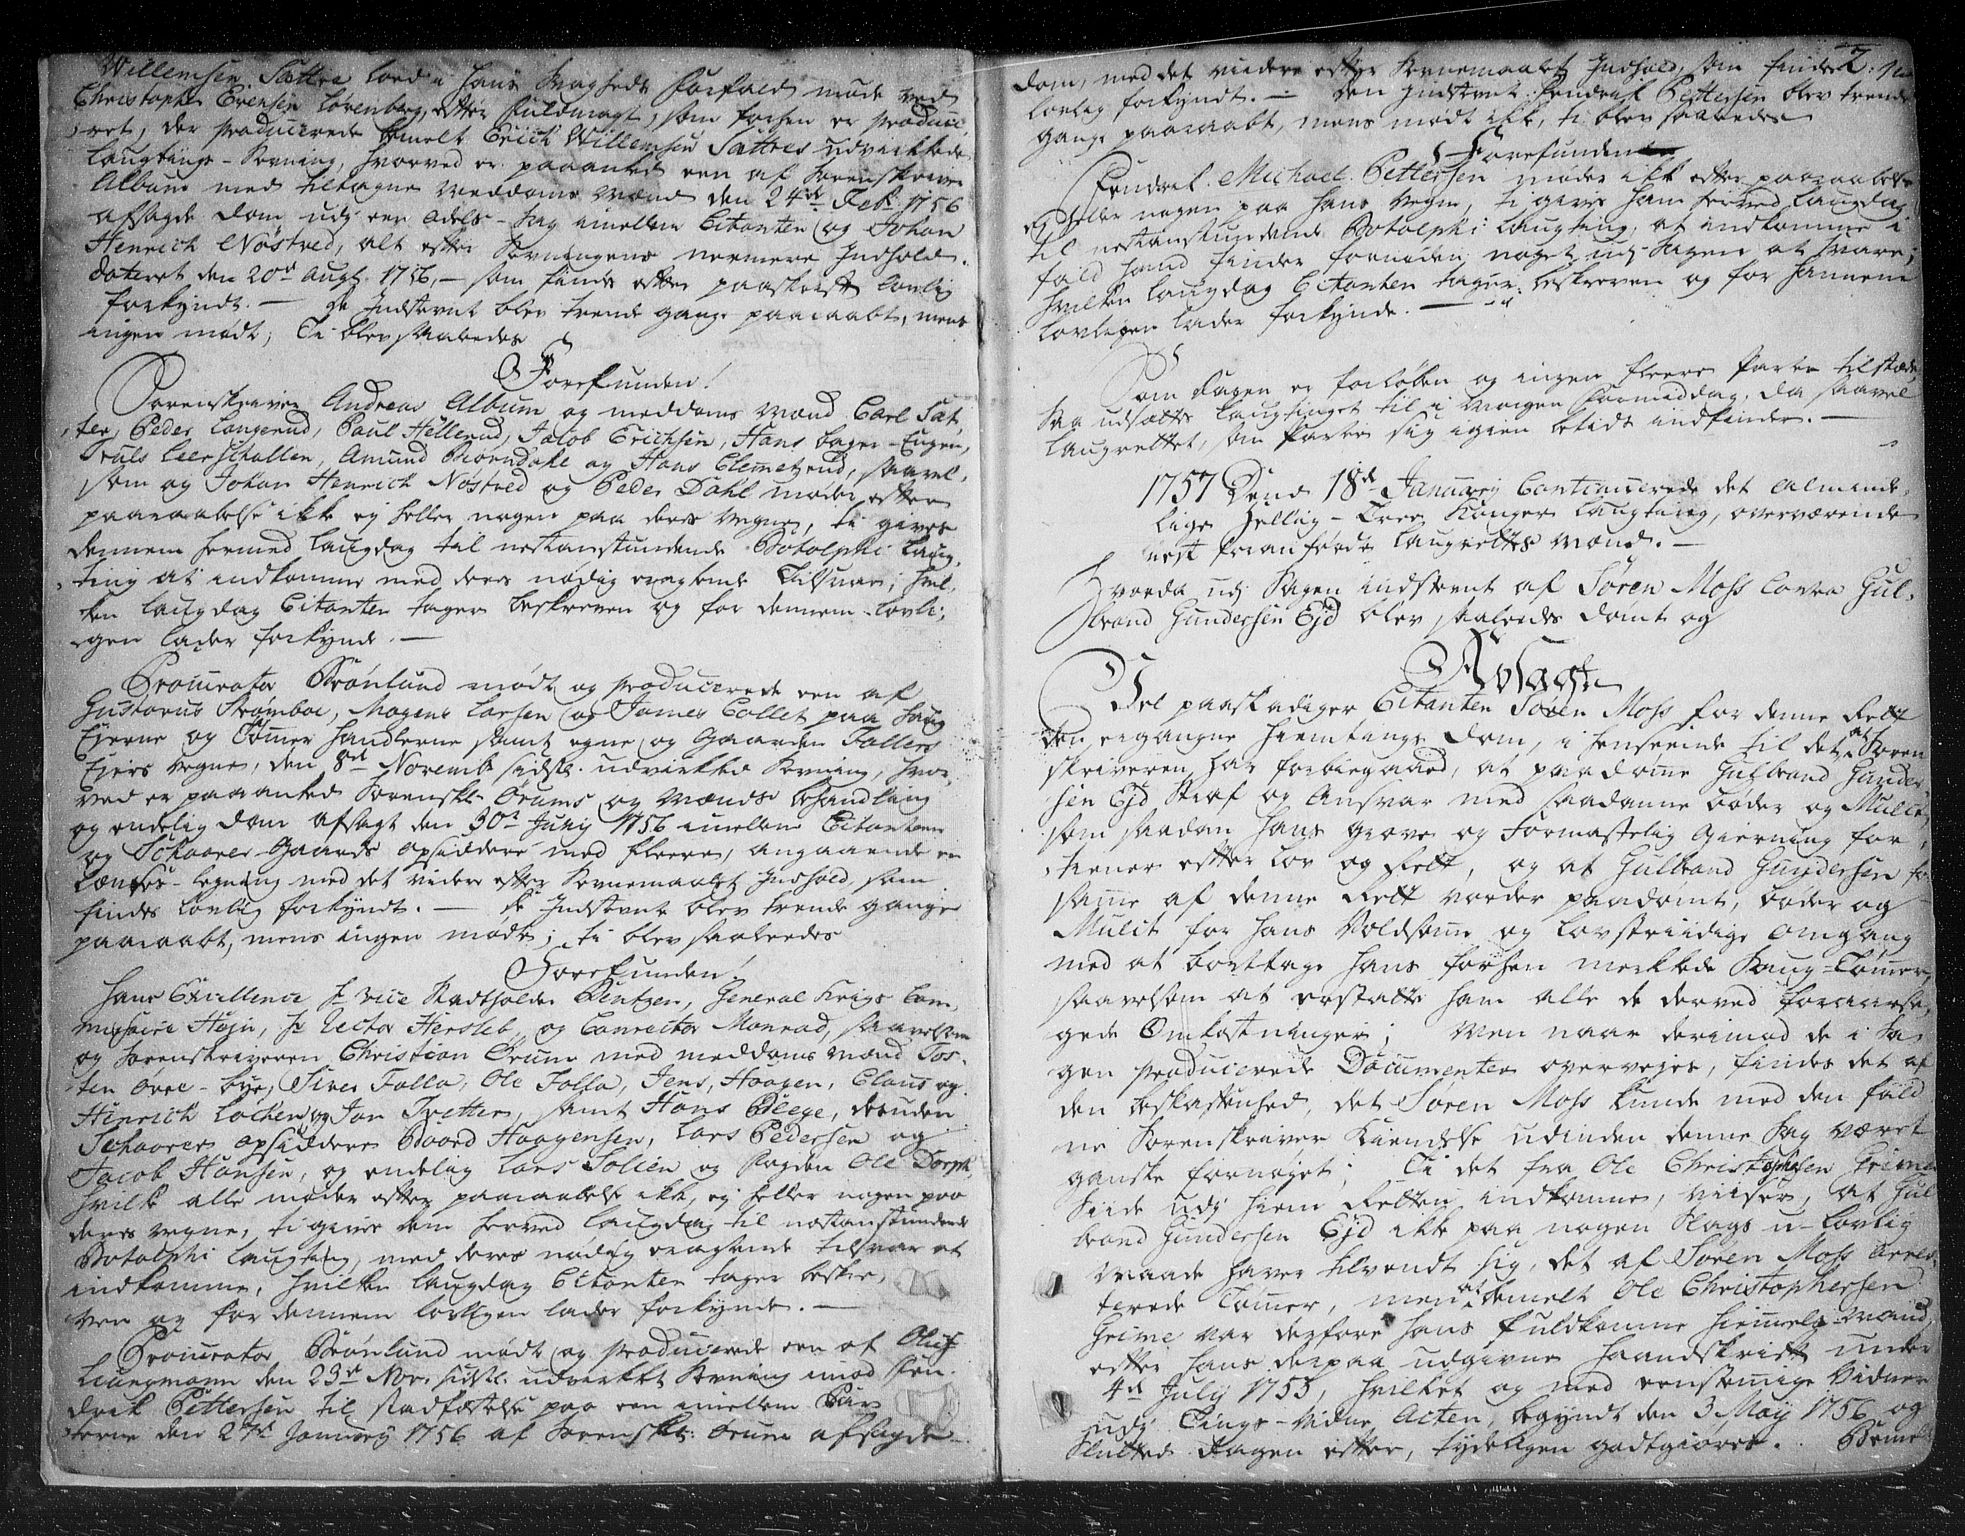 Willemsen Sættre lod i hans Svagheds Forfald møde ved
Christopher Evensen Lövenberg, efter fuldmagt, som forhen er produce-
ret, der producerede bemelt Erich Willemsen Sættres udvirkede
Laugtings-Stevning, hvorved er paaanket een af Sorenskriver
Album med tiltagne Meddoms Mænd den 24de Feb. 1756
afsagde Dom udj een Odels-Sag imellem Citanten og Johan
Henrich Nöstved, alt efter Stevningens nermere Indhold.
dateret den 20de Augt. 1756, som findes efter paaskrift lovlig
forkyndt. — De Indstevnte blev trende gange paaraabt, mens
ingen mødte; Ti blev saaledes
Forefunden!
Sorenskriver Andreas Album og meddoms Mænd Carl Sæt-
ter, Peder Langerud, Paul Hellerud, Jacob Erichsen, Hans Lager-Engen,
Truls Leerskallen, Amund Thorndahl og Hans Clemetzrud, saavel-
som og Johan Henrich Nöstved og Peder Dahl møder efter
paaraabelse ikke ej heller nogen paa deres Vegne, ti gives
dennem hermed Laugdag til nestanstundende Botolphi Laug-
ting at indkomme med deres nødig eragtende Tilsvar; hvil-
ken Laugdag Citanten tager beskreven og for dennem lovli-
gen lader forkynde. —
Procurator Brönlund mødte og producerede een af
Gustavus Stromboe, Mogens Larsen og James Collet paa Saug
Eyerne og Tömmer Handlerne samt egne og Gaarden Fallers
Eiers Vegne, den 8de Novemb. sidstl. udvirkede Stevning, hvor-
ved er paaanket Sorenskr. Örums og Mænds behandling
og endelig Dom afsagt den 30te July 1756 imellem Citanterne
og Schaarer-Gaards Opsiddere med fleere, angaaende en
Lændses-legning med det videre efter Stevnemaalets Indhold, som
findes lovlig forkyndt. — De Indstevnte blev trende gange
paaraabt, mens ingen mødte; ti blev saaledes
Forefunden!
Hans Excellence Hr. Vice Statholder Bentzen, General Krigs Com-
missaire Hejn, Hr. Rector Hersleb, og Conrector Monrad, saavelsom
og Sorenskriveren Christian Örum med meddoms Mænd Tos-
ten Övre-bye, Siver Folla, Ole Folla, Jens, Haagen, Claus og
Hinrich Locken og Jon Tvetter, samt Hans Beege, desuden
Schaarer Opsiddere Baard Haagensen, Lars Pedersen og
Jacob Hansen, og endelig Lars Solien og Ole Dorph,
hvilke alle møder efter paaraabelse ikke, ej heller nogen paa
deres Vegne, ti gives dem herved Laugdag til næstanstundende
Botolphi Laugting, med deres nødig eragtende tilsvar at
indkomme, hvilken Laugdag Citanten tager beskre-
ven og for dennem lovligen lader forkynde. —
Procurator Brönlund mødte og producerede een af Oluf
Laugmann den 23de Nov. sidstl. udvirket Stevning imod Hen-
drik Pettersen til Stadfæstelse paa een imellem Par-
terne den 27de January 1756 af Sorenskr. Örum afsagde
2.
Dom, med det videre efter Stevnemaalets Indhold, som findes
lovlig forkyndt. — Den Indstevnte Hendrik Pettersen blev trende
gange paaraabt, mens mødte ikke, ti blev saaledes
Forefunden
Hendrik Michael Pettersen møder ikke efter paaraabelse
ej heller nogen paa hans Vegne, ti gives ham herved Laugdag
til nestanstundende Botolphi Laugting, at indkomme i
fald hand finder fornøden noget udj Sagen at svare;
hvilken Laugdag Citanten tager beskreven og for hannem
lovligen lader forkynde. —
Som Dagen er forløben og ingen fleere Parter tilstæde,
saa udsættes Laugtinget til i Morgen Formiddag, da saavel
Laugrettet, som Parter sig igien betids indfinder. —
1757 Dend 18de January Continuerede det alminde-
lige Hellig-Tree Kongers Laugting, overværende
nest foranførde Laugrettes Mænd. —
Hvorda udj Sagen indstevnt af Sören Moss Contra Gul-
brand Gundersen Ejd blev saaledes Dömt og
Afsagt
Vel paaskadiger Citanten Sören Moss for denne Rett
den ergangne Hiemtings Dom, i henseende til det at Soren-
skriveren har forbiegaaed, at paadömme Gulbrand Gunder-
sen Ejd Straf og Ansvar med saadanne Böder og Mulct,
som saadan hans Grove og Formastelig Gierning for-
tiener efter Lov og Rett, og at Gulbrand Gundersen
samme af denne Rett vorder paadömt, Böder og
Mulct for hans Voldsomme og Lovstriidige Omgang
med at borttage hans forhen merkede Saug-Tömmer,
saavelsom at erstatte ham alle de derved foraarsa-
gede Omkostninger; Men naar derimod de i Sa-
gen producerede Documenter overvejes, findes det af
den beskaffenhed, det Sören Moss kunde med den fald-
ne Sorenskriver Kiendelse udinden denne Sag været
ganske fornøjet; Ti det fra Ole Christophersen Grimes
Siide udj Hiem Retten indkomne, viiser, at Gul-
brand Gundersen Ejd ikke paa nogen Slags u-lovlig
Maade haver tilvendt sig, det af Sören Moss arres-
terede Tömmer, men at bemelte Ole Christophersen
Grime var derfore hans fuldkomne hiemmels-Mand,
efter hans derpaa udgivne Haandskrift under
4de July 1755, hvilket og med eenstemmige Vidner
udj Tings-Vidne Acten, begyndt den 3 May 1756 og
Sluttet Dagen efter, tydeligen godtgiøres. Beme-